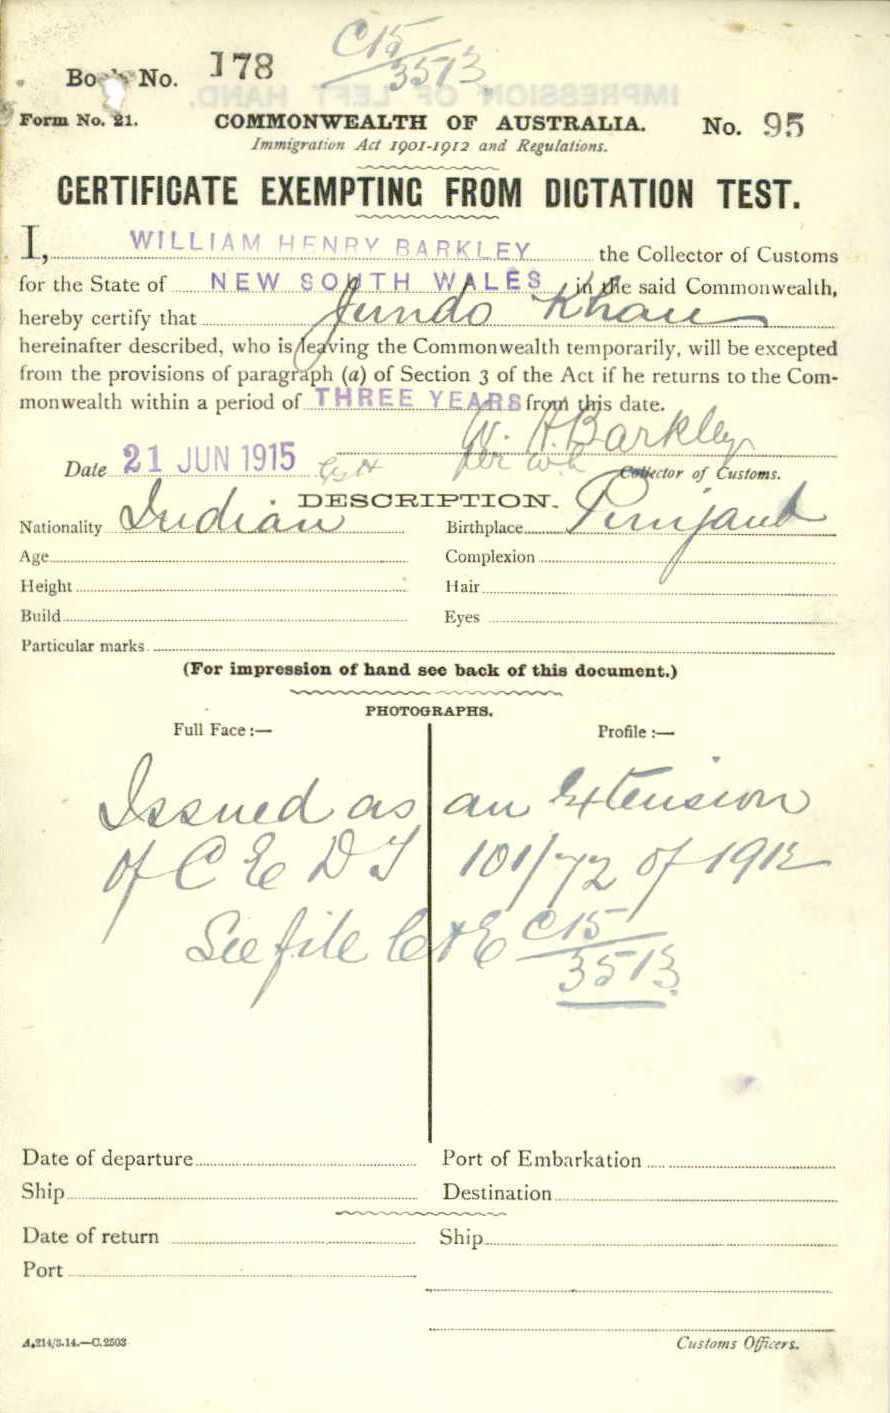 C15/3513
Book No. 178
IMPRESSION OF LEFT HAND.
Form No. 21. COMMONWEALTH OF AUSTRALIA. No. 95
Immigration Act 1901-1912 and Regulations.
CERTIFICATE EXEMPTING FROM DICTATION TEST.
I, WILLIAM HENRY BARKLEY the Collector of Customs
for the State of NEW SOUTH WALES in the said Commonwealth,
hereby certify that Jundo Khan
hereinafter described, who is leaving the Commonwealth temporarily, will be excepted
from the provisions of paragraph (a) of Section 3 of the Act if he returns to the Com-
monwealth within a period of THREE YEARS from this date.
W. H. Barkley
Date 21 JUN 1915 per Collector of Customs.
DESCRIPTION.
Nationality Indian Birthplace Punjaub
Age Complexion
Height Hair
Build Eyes
Particular marks
(For impression of hand see back of this document.)
PHOTOGRAPHS.
Full Face :— Profile :—
Issued as an Extension
of C E D T 101/72 of 1912
See file C & E C15/3513
Date of departure Port of Embarkation
Ship Destination
Date of return Ship
Port
A.214/3.14.—C.2503 Customs Officers.